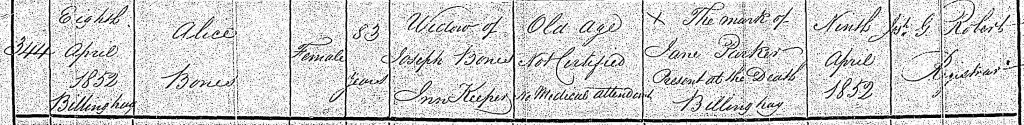 344
Eighth
April
1852
Billinghay
Alice
Bones
Female
83
Years
Widow of
Joseph Bones
Inn Keeper
Old Age
Not Certified
No Medical attendant
X The mark of
Jane Parker
Present at the Death
Billinghay
Ninth
April
1852
Jos. G. Roberts
Registrar